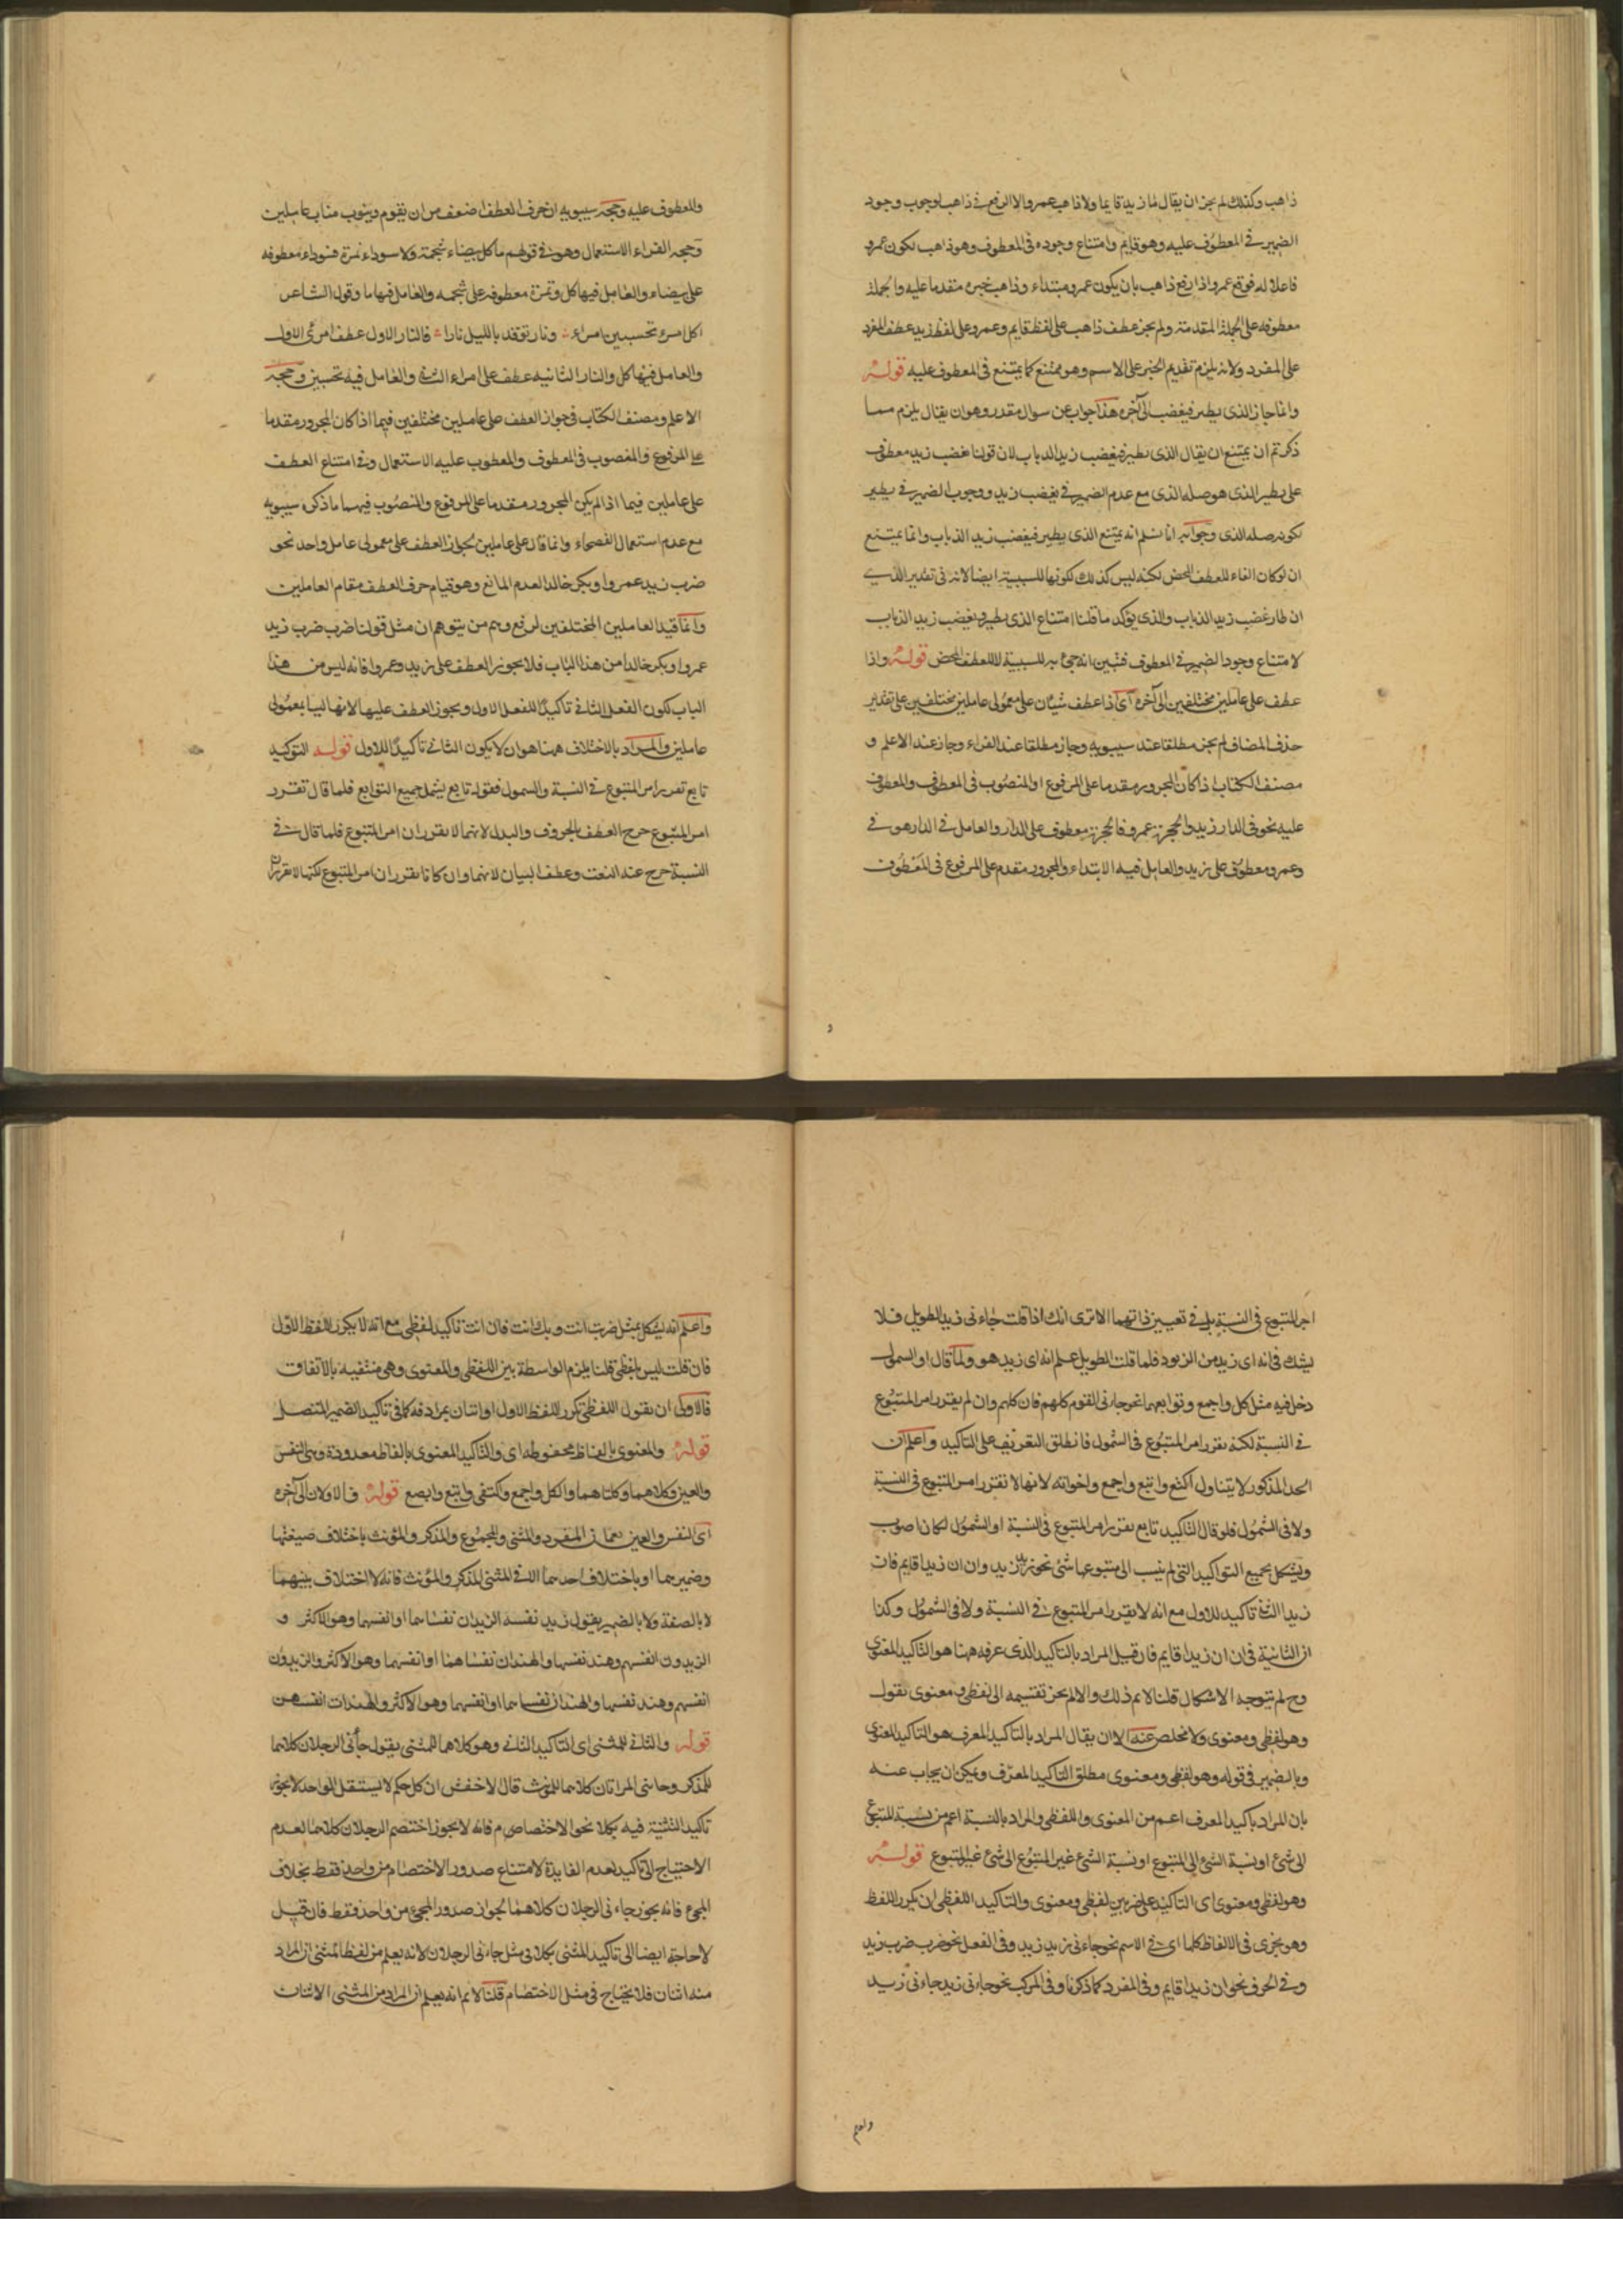 ذاهب وكذلك لم يجز ان يقال ما زيد قايما ولا ذاهب عمرو الا الرفع في ذاهب لوجوب وجود
الضمير في المعطوف عليه وهو قايم وامتناع وجوده فى المعطوف وهو ذاهب لكون عمرو
فاعلا له فوقع عمرو اذا رفع ذاهب بان يكون عمرو مبتداء وذاهب خبره متقدما عليه والجملة
معطوفه على الجملة المتقدمة ولم يجز عطف ذاهب على لفظ قايم وعمرو على لفظ زيد عطف المفرد
على المفرد ولانه يلزم تقديم الخبر على الاسم وهو ممتنع كما يمتنع فى المعطوف عليه قوله
وانما جاز الذى يطير فيغضب الى آخره هذا جواب عن سوال مقدر وهو ان يقال يلزم مما
ذكرتم ان يمتنع ان يقال الذى يطير فيغضب زيد الذباب لان قولنا يغضب زيد معطوف
على يطير الذى هو صله الذى مع عدم الضمير في يغضب زيد ووجوب الضمير في يطير
لكونه صله الذى وجوابه انا نسلم انه يمتنع الذى يطير فيغضب زيد الذباب وانما يمتنع
ان لو كان الفاء للعطف المحض لكنه ليس كذلك لكونها للسببية ايضا لانه فى تقدير الذي
ان طار غضب زيد الذباب والذى يؤكد ما قلنا امتناع الذى يطير ويغضب زيد الذباب
لامتناع وجود الضمير في المعطوف فتبين انه جئ به للسببية لا للعطف المحض قوله واذا
عطف على عاملين مختلفين الى آخره اى اذا عطف شيئان على معمولى عاملين مختلفين على تقدير
حذف المضاف لم يجز مطلقا عند سيبويه وجاز مطلقا عند الفراء وجاز عند الاعلم و
مصنف الكتاب اذا كان المجرور مقدما على المرفوع او المنصوب فى المعطوف والمعطوف
عليه نحو فى الدار زيد والحجرة عمرو فالحجرة معطوف على الدار والعامل في الدار هو في
وعمرو معطوف على زيد والعامل فيه الابتداء والمجرور مقدم على المرفوع فى المعطوف
والمعطوف عليه وحجة سيبويه ان حرف العطف اضعف من ان يقوم وينوب مناب عاملين
وحجه الفراء الاستعمال وهو في قولهم ما كل بيضاء شحمة ولا سوداء تمرة فسوداء معطوفه
على بيضاء والعامل فيها كل وتمرة معطوفه على شحمه والعامل فيها ما وقول الشاعر
اكل امرء تحسبين امراء ونار توقد بالليل نارا فالنار الاول عطف امرئ الاول
والعامل فيها كل والنار الثانيه عطف على امراء الثانى والعامل فيه تحسبين وحجه
الاعلم ومصنف الكتاب فى جواز العطف على عاملين مختلفين فيما اذا كان المجرور مقدما
على المرفوع والمنصوب فى المعطوف والمعطوب عليه الاستعمال وفي امتناع العطف
على عاملين فيما اذا لم يكن المجرور مقدما على المرفوع والمنصوب فيهما ما ذكره سيبويه
مع عدم استعمال الفصحاء وانما قال على عاملين لجواز العطف على معمولى عامل واحد نحو
ضرب زيد عمروا وبكر خالدا لعدم المانع وهو قيام حرف العطف مقام العاملين
وانما قيد العاملين المختلفين لرفع وهم من يتوهم ان مثل قولنا ضرب ضرب زيد
عمروا وبكر خالدا من هذا الباب فلا يجوز العطف على زيد وعمروا فانه ليس من هذا
الباب لكون الفعل الثانى تاكيدا للفعل الاول ويجوز العطف عليها لانها ليسا بمعمولى
عاملين والمراد بالاختلاف ههنا هو ان لا يكون الثانى تاكيدا للاول قوله التوكيد
تابع تقرر امر المتبوع في النسبة والشمول فقوله تابع يشمل جميع التوابع فلما قال تقرر
امر المتبوع خرج العطف بالحروف والبدل لانهما لا يقرران امر المتبوع فلما قال في
النسبة خرج عنه النعت وعطف البيان لانهما وان كانا يقرران امر المتبوع لكنها لا تقرران
و
امر المتبوع فى النسبة بل في تعيين ذاتهما الا ترى انك اذا قلت جاءنى زيد الطويل فلا
يشك فى انه اى زيد من الزيود فلما قلت الطويل علم انه اى زيد هو ولما قال او الشمول
دخل فيه مثل كل واجمع وتوابعهما نحو جاءنى القوم كلهم فان كلهم وان لم يقرر امر المتبوع
في النسبة لكنه يقرر امر المتبوع فى الشمول فانطلق التعريف على التاكيد واعلم ان
الحد المذكور لا يتناول اكتع وابتع واجمع واخواته لانها لا تقرر امر المتبوع فى النسبة
ولا فى الشمول فلو قال التاكيد تابع يقرر امر المتبوع فى النسبة او الشمول لكان اصوب
ويشكل بجميع التواكيد التى لم ينسب الى متبوعها شئ نحو زيد زيد وان ان زيدا قايم فان
زيدا الثانى تاكيد للاول مع انه لا يقرر امر المتبوع في النسبة ولا فى الشمول وكذا
ان الثانية فى ان ان زيدا قايم فان قيل المراد بالتاكيد الذى عرفه ههنا هو التاكيد المعنوى
وح لم يتوجه الاشكال قلنا لا نم ذلك والا لم يجز تقسيمه الى لفظى ومعنوى بقوله
وهو لفظى ومعنوى ولا مخلص عنه الا ان يقال المراد بالتاكيد المعرف هو التاكيد المعنوى
وبالضمير فى قوله وهو لفظى ومعنوى مطلق التاكيد المعرف ويمكن ان يجاب عنه
بان المراد باكيد المعرف اعم من المعنوى واللفظى والمراد بالنسبة اعم من نسبة المتبوع
الى شئ او نسبة الشئ الى المتبوع او نسبة الشئ غير المتبوع الى شئ غير المتبوع قوله
وهو لفظى ومعنوى اى التاكيد على ضربين لفظى ومعنوى والتاكيد اللفظى ان يكرر اللفظ
وهو يجرى فى الالفاظ كلها اى في الاسم نحو جاءنى زيد زيد وفى الفعل نحو ضرب ضرب زيد
وفي الحرف نحو ان ان زيدا قايم وفى المفرد كما ذكرنا وفى المركب نحو جاءنى زيد جاءنى زيد
واعلم
واعلم انه يشكل بمثل ضربت انت وبك انت فان انت تاكيد لفظى مع انه لا يكرر اللفظ الاول
فان قلت ليس بلفظى قلنا يلزم الواسطة بين اللفظى والمعنوى وهى منتفيه بالاتفاق
فالاولى ان يقول اللفظى تكرر اللفظ الاول او اتيان بمرادفه كما فى تاكيد الضمير المتصل
قوله والمعنوى بالفاظ محفوظه اى والتاكيد المعنوى بالفاظ معدودة وهى النفس
والعين وكلاهما وكلتاهما والكل واجمع واكتع وابتع وابصع قوله فالاولان الى آخره
اى النفس والعين يعمان المفرد والمثنى والمجموع والمذكر والمؤنث باختلاف صيغتها
وضميرهما او باختلاف احدهما الا في المثنى المذكر والمؤنث فانه لا اختلاف بينهما
لا بالصفة ولا بالضمير يقول زيد نفسه الزيدان نفساهما او انفسهما وهو الاكثر و
الزيدون انفسهم وهند نفسها والهندان نفساهما او انفسهما وهو الاكثر والزيدون
انفسهم وهند نفسها والهندان نفساهما او انفسهما وهو الاكثر والهندات انفسهن
قوله والثاني للمثنى اى التاكيد الثانى وهو كلاهما للمثنى يقول جاءنى الرجلان كلاهما
للمذكر وجاءتنى المراتان كلاهما للمونث قال الاخفش ان كل حكم لا يستقل الواحد لا يجوز
تاكيد التثنية فيه بكلا نحو الاختصام فانه لا يجوز اختصم الرجلان كلاهما لعدم
الاحتياج الى تاكيد لعدم الفايدة لامتناع صدور الاختصام من واحد فقط بخلاف
المجئ فانه يجوز جاءنى الرجلان كلاهما لجواز صدور المجئ من واحد فقط فان قيل
لا حاجة ايضا الى تاكيد المثنى بكلا فى مثل جاءنى الرجلان لانه يعلم من لفظ المثنى ان المراد
منه اثنان فلا يحتاج فى مثل الاختصام قلنا لا نم انه يعلم ان المراد من المثنى الاثنان